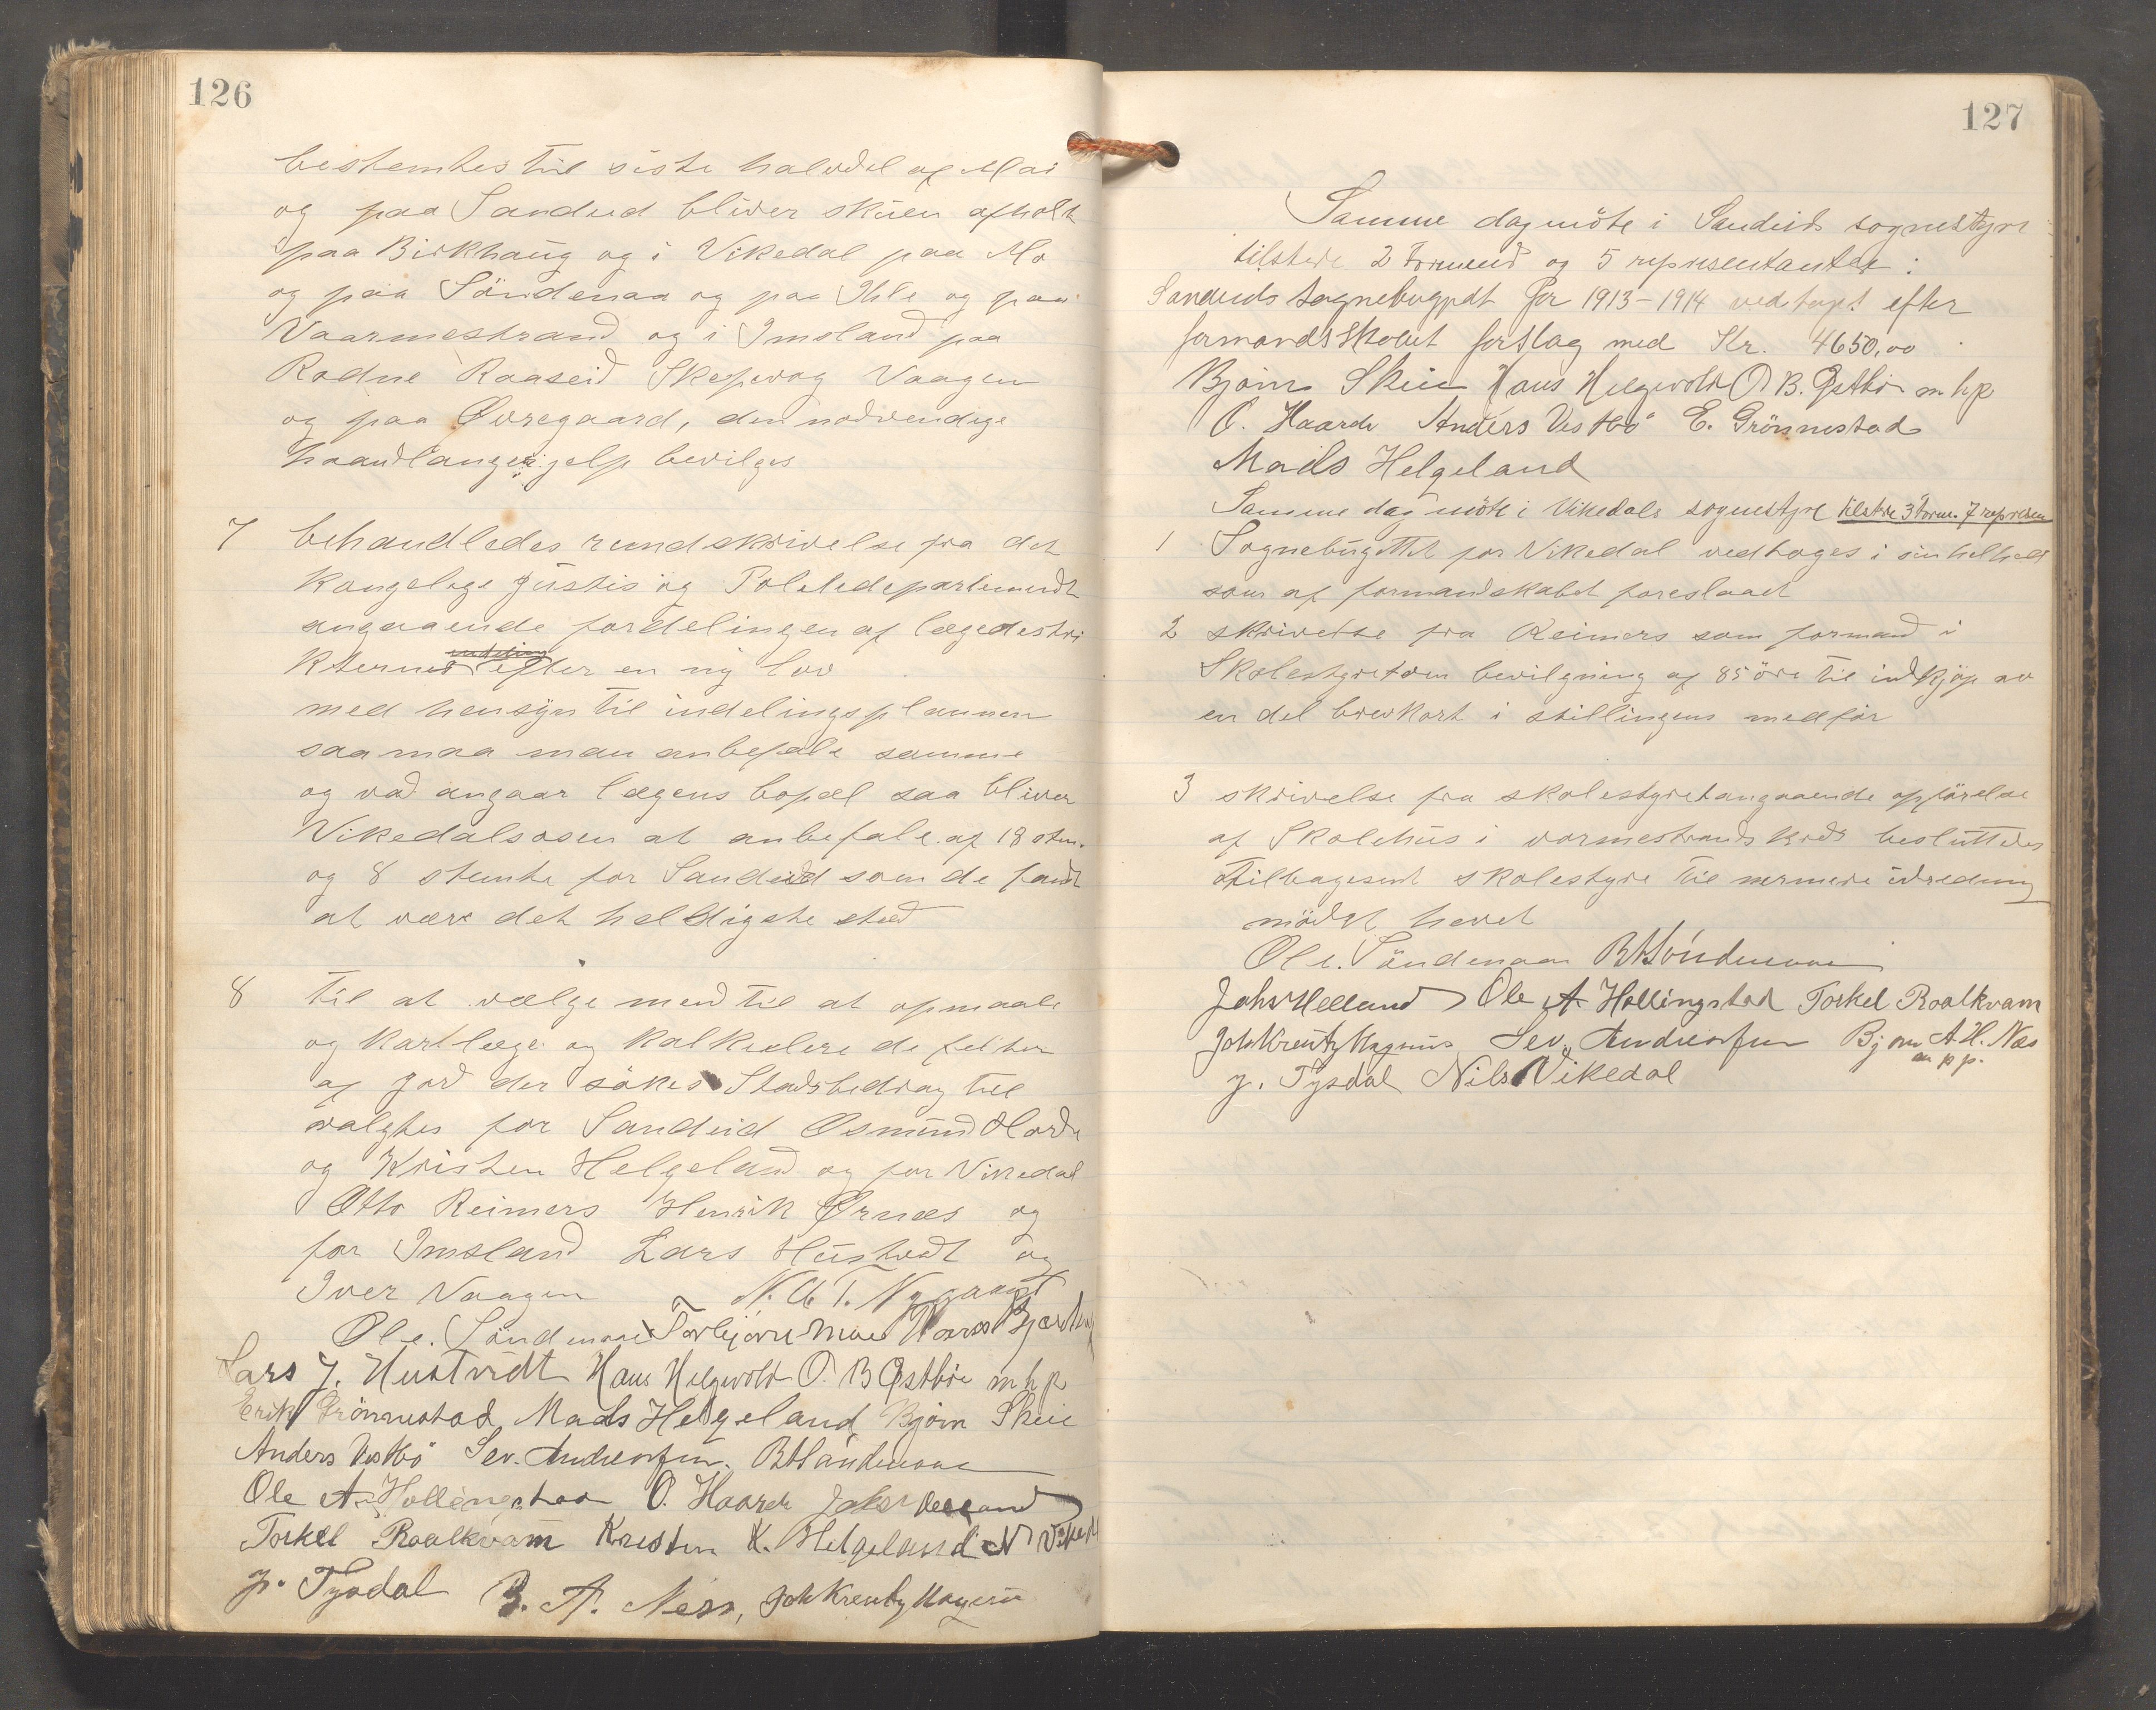 126
bestemtes til siste halvdel af Mai
og paa Sandeid bliver skuen afholt
paa Birkhaug og i Vikedal paa Mo
og paa Söndenaa og paa Ihle og paa
Vaarmestrand og i Imsland paa
Rodne Raaseid Skeipvog Vaagen
og paa Øvregaard, den nødvendige
haandlangerjelp bevilges
7 behandledes rundskrivelse fra det
Kongelige Justis og Politidepartementt
angaaende fordelingen af lægedestri
kternes efter en ny lov
med hensyn til indelingsplannen
saa maa man anbefale samme
og vad angaar lægens bopæl saa bliver
Vikedalsosen at anbefale af 18 stm.
og 8 stemte for Sandeid som de fandt
at være det heldigste sted
8 til at vælge mend til at opmaale
og kartlege og kalkulere de felter
af jord der søkes Stadsbedrag til
valgtes for Sandeid Osmund Horde
og Kristen Helgeland og for Vikedal
Otto Reimers Henrik Ørnæs og
for Imsland Lars Hustvedt og
Iver Vaagen N. A. T. Nygaard
Ole. Söndenaa Torbjørn Moe
Lars J. Hustvedt Hans Helgevold O. B Østbø m h p
Erik Grönnestad Mads Helgeland Bjørn Skeie
Anders Vestbö Sev. Andreassen. B Höndenaa
Ole A Hollingstad O. Haarde Johs Helland
Torkel Roalkvam Kresten K. Helgeland N Vikedal
J. Tysdal B. A. Ness, Joh Kreutz Magnus
127
Samme dag möte i Sandeids sognestyre
tilstede 2 Formend og 5 representanter:
Sandeids sognebugedt for 1913-1914 vedtaget efter
formandsskabet forslag med Kr. 4650,00
Bjørn Skeie Hans Helgevold O B. Østbø m h p
O. Haarde Anders Vestbö E. Grönnestad
Mads Helgeland
Samme dag möte i Vikedals sognestyre tilstde 3 Form. 7 represen
1 Sognebugettet for Vikedal vedtoges i sin helhed
som af formandskabet foreslaaet
2 skrivelse fra Reimers som formand i
Skolestyret om bevilgning af 85 öre til indkjöp av
en del brevkort i stillingens medfør
3 skrivelse fra skolestyret angaaende opförelse
af Skolehus i vormestrands kreds besluttedes
tilbagesent skolestyre til nermere udredning
mödet hevet
Ole. Söndenaa B Höndenaa
Johs Helland Ole A Hollingstad Torkel Roalkvam
Joh Kreutz Magnus Sev. Andreassen Bjørn A. H. Næs
m p p.
J. Tysdal Nils Vikedal